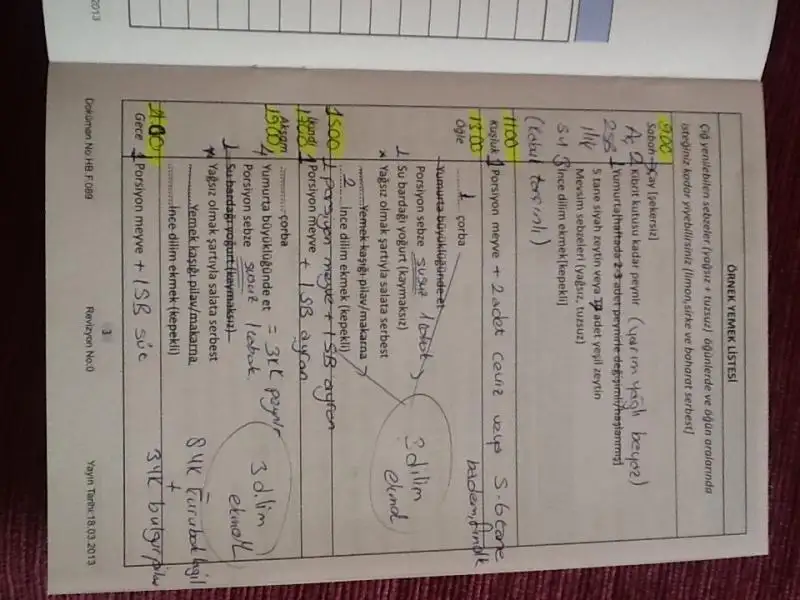 ÖRNEK YEMEK LİSTESİ
Çiğ yenilebilen sebzeler (yağsız + tuzsuz) öğünlerde ve öğün aralarında
isteğiniz kadar yiyebilirsiniz (limon,sirke ve baharat serbest)
9:00
Sabah Çay (şekersiz)
2 Kibrit kutusu kadar peynir (yarım yağlı beyaz)
1 Yumurta(haftada 2-3 adet peynirle değişimli/haşlanmış)
5 tane siyah zeytin veya adet yeşil zeytin
Mevsim sebzeleri (yağsız, tuzsuz)
3 İnce dilim ekmek(kepekli)
11:00
Kuşluk 1 Porsiyon meyve + 2 adet ceviz veya 5-6 tane
badem, fındık
13:00
Öğle 1 çorba
Yumurta büyüklüğünde et
Porsiyon sebze susuz 1 tabak
1 Su bardağı yoğurt (kaymaksız)
Yağsız olmak şartıyla salata serbest
Yemek kaşığı pilav/makarna
2 İnce dilim ekmek (kepekli)
2 dilim
ekmek
15:00 1 porsiyon meyve + 1 SB ayran
İkindi 1 Porsiyon meyve + 1 SB ayran
Akşam çorba
19:00 4 Yumurta büyüklüğünde et = 3KK peynir
Porsiyon sebze susuz 1 tabak
1 Su bardağı yoğurt (kaymaksız)
Yağsız olmak şartıyla salata serbest
Yemek kaşığı pilav/makarna
İnce dilim ekmek (kepekli)
3 dilim
ekmek
8 YK kurubaklagil
+
3YK bulgur
Gece 1 Porsiyon meyve + 1 SB süt
3
Doküman No:HB.F.089
Revizyon No:0
Yayın Tarihi:18.03.2013
2013